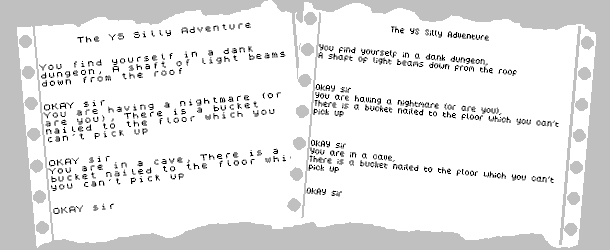 The YS Silly Adventure
You find yourself in a dank
dungeon, A shaft of light beams
down from the roof
OKAY sir
You are having a nightmare (or
are you), There is a bucket
nailed to the floor which you
can't pick up
OKAY sir
You are in a cave, There is a
bucket nailed to the floor whi
you can't pick up
OKAY sir
The YS Silly Adventure
You find yourself in a dank dungeon,
A shaft of light beams down from the roof
OKAY sir
You are having a nightmare (or are you),
There is a bucket nailed to the floor which you can't
pick up
OKAY sir
You are in a cave,
There is a bucket nailed to the floor which you can't
pick up
OKAY sir